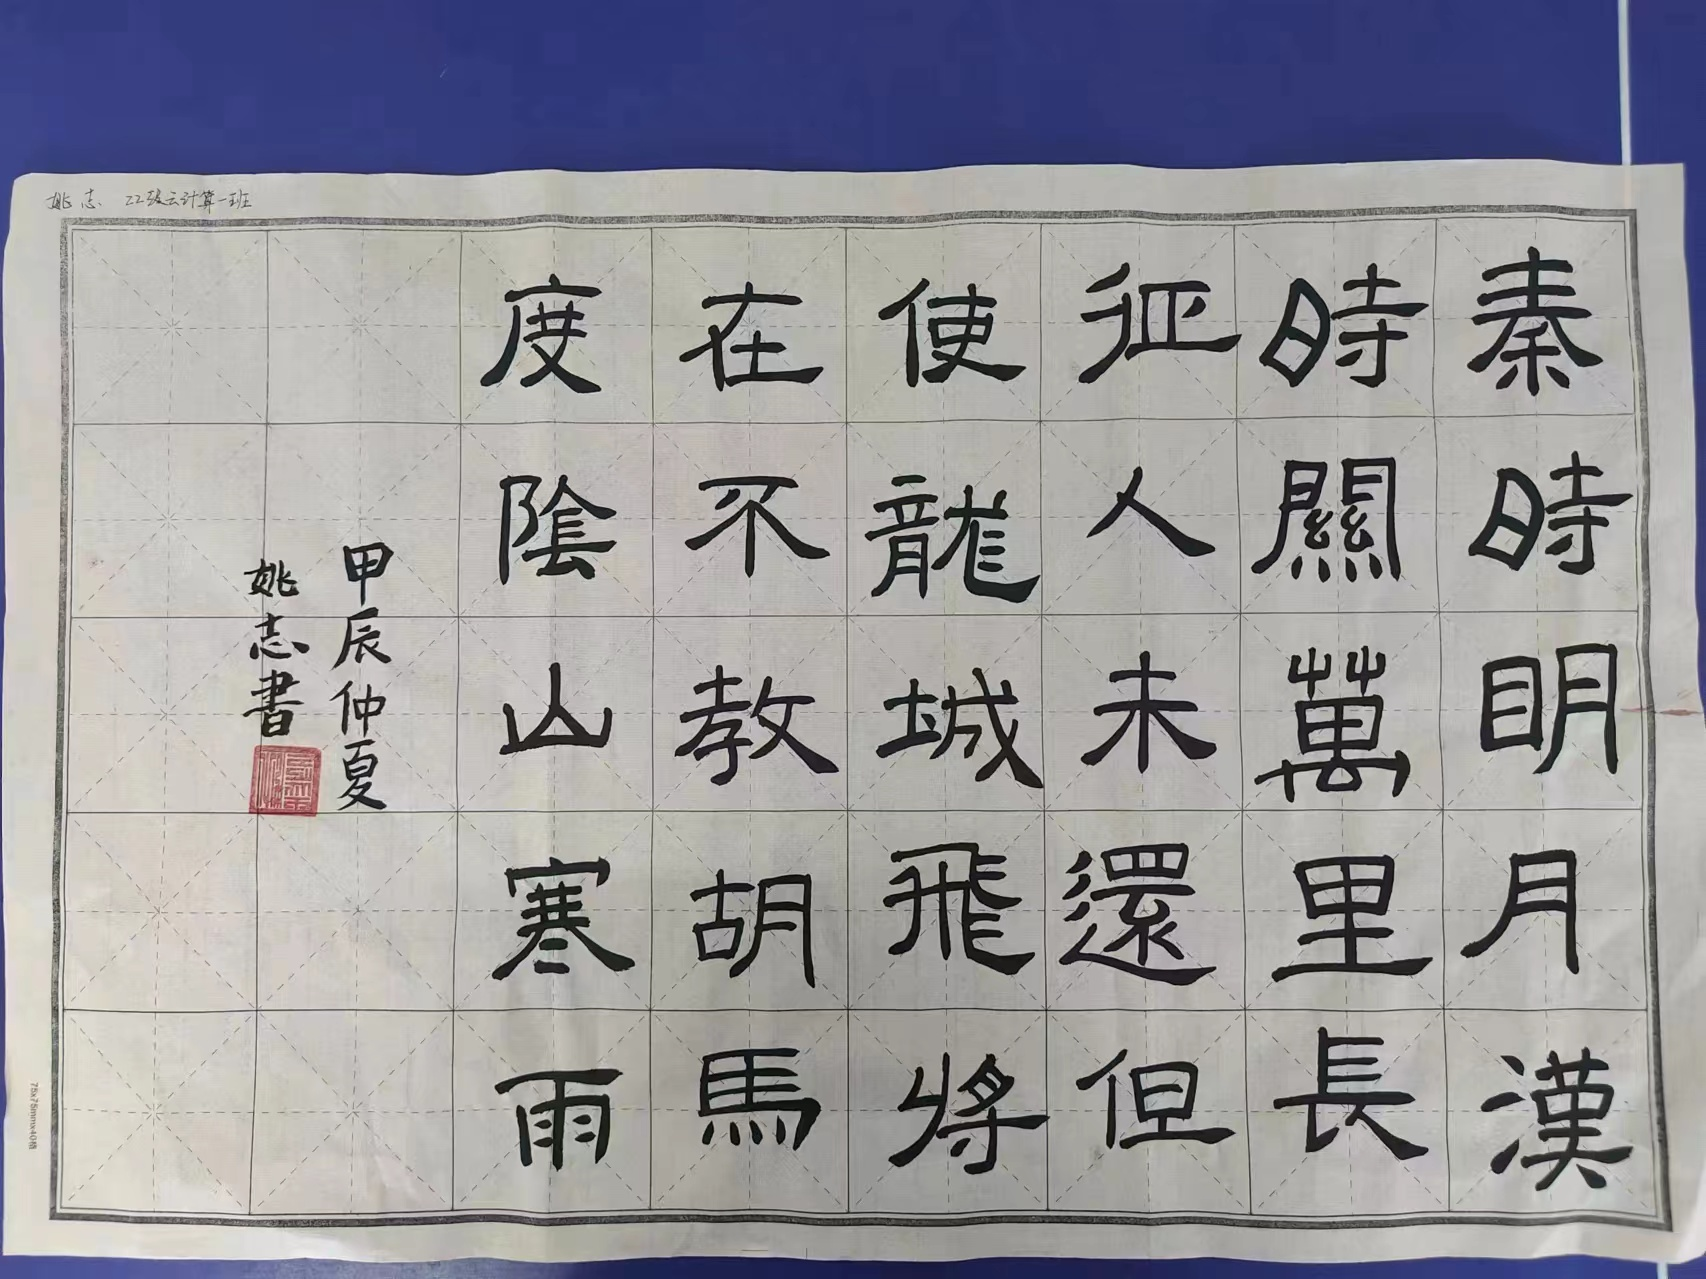 姚志 22级云计算一班
秦時明月漢
時關萬里長
征人未還但
使龍城飛將
在不教胡馬
度陰山寒雨
甲辰仲夏
姚志書
75x75mmx40格